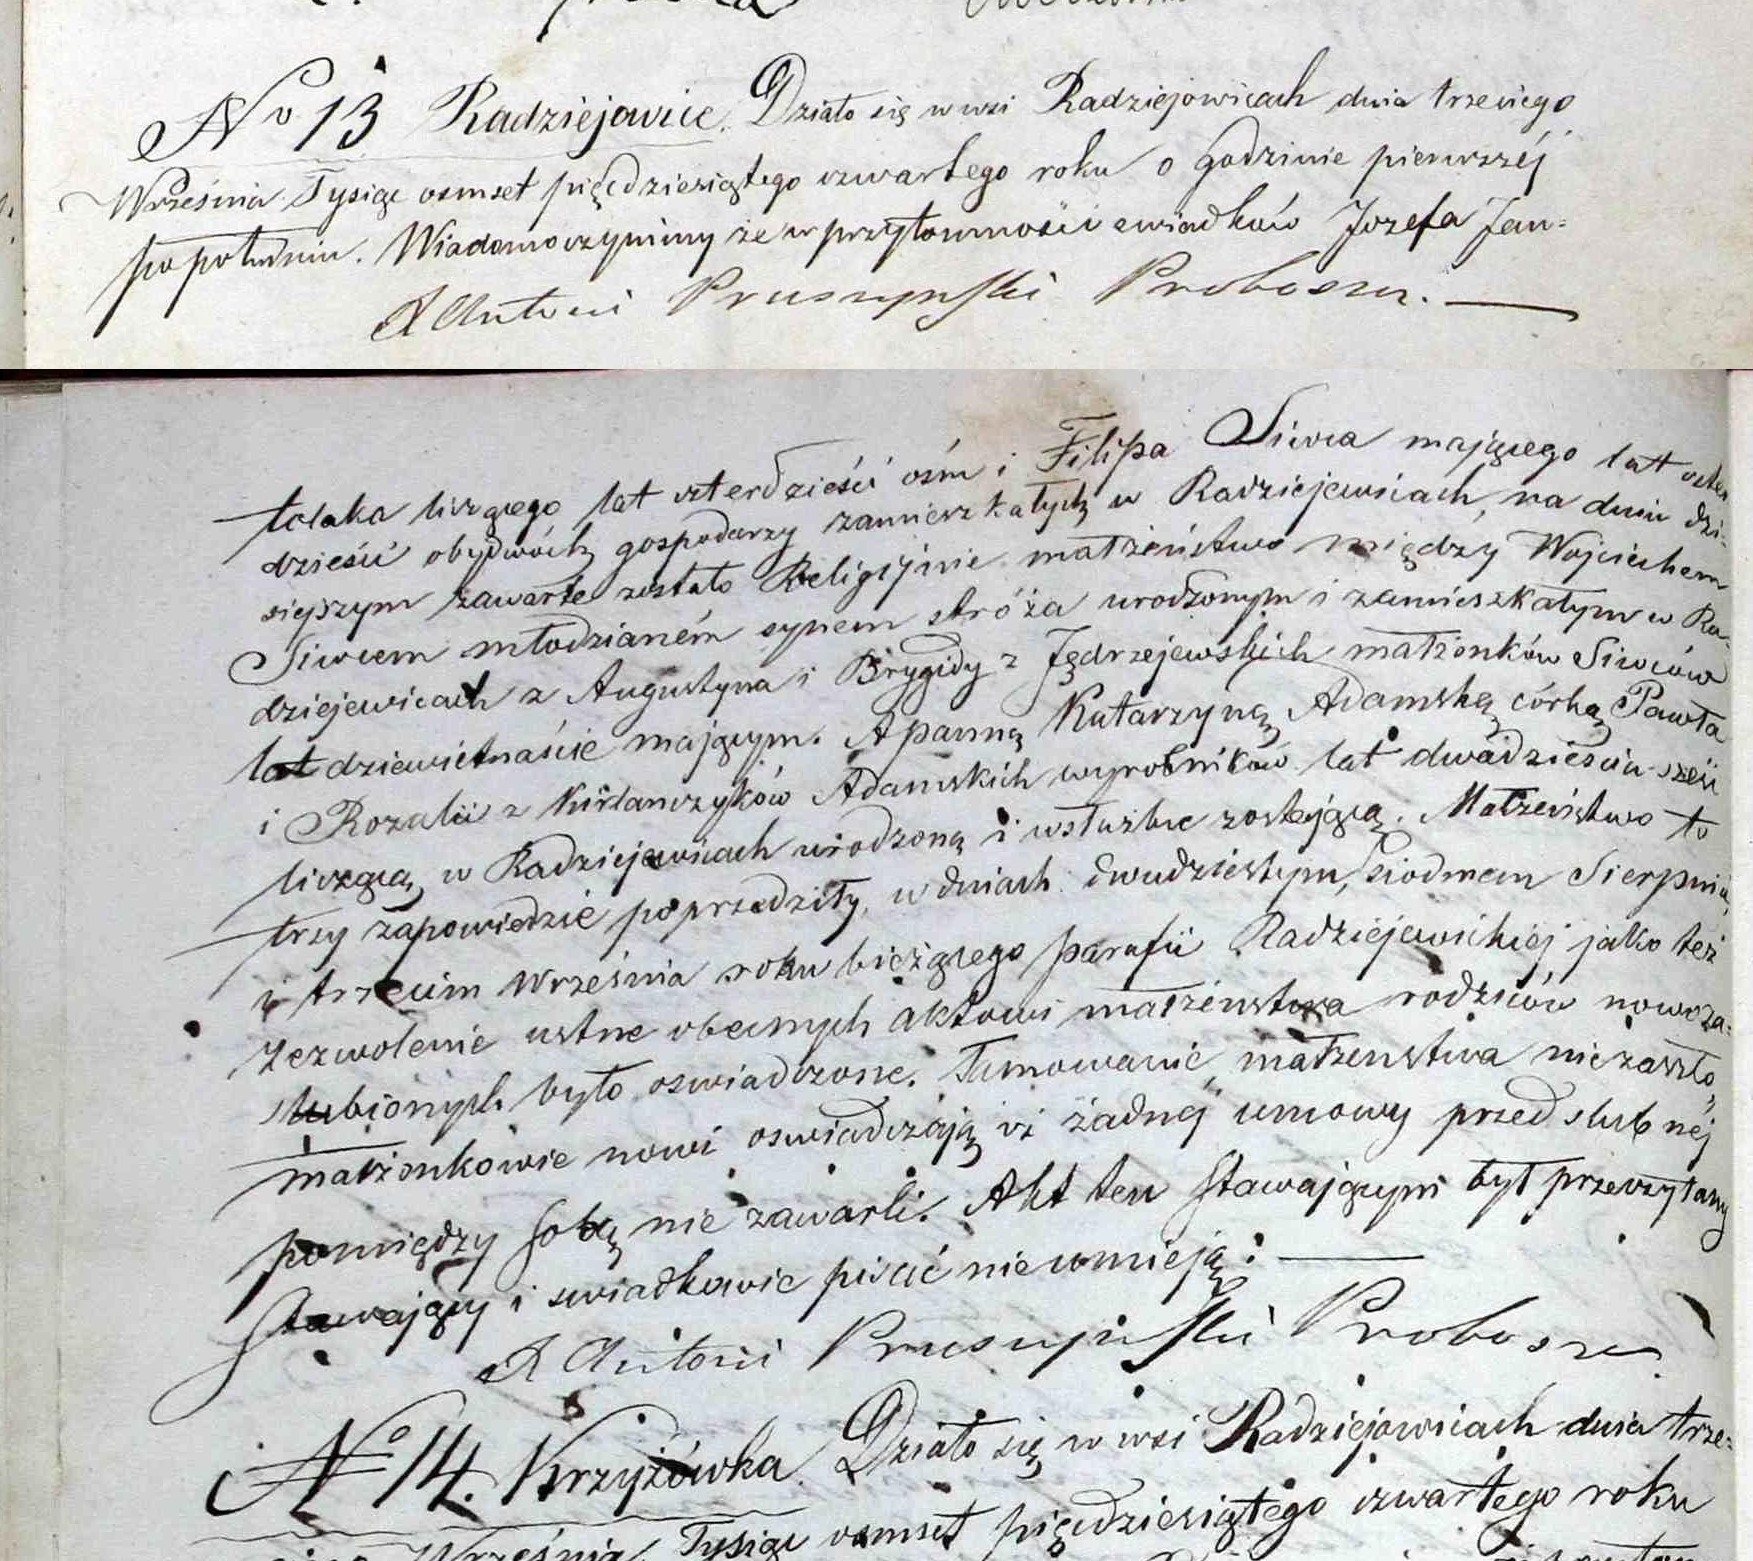 No 13 Radziejowice. Działo się w wsi Radziejowicach dnia trzeciego
Września Tysiąc osmset pięćdziesiątego czwartego roku o godzinie pierwszéj
po południu. Wiadomo czynimy że w przytomności swiadków Jozefa Jan=
X Antoni Pruszyński Proboszcz.
tolaka liczącego lat czterdzieści óśm i Filipa Siwca mającego lat
dzieści obydwóch gospodarzy zamieszkałych w Radziejewicach, na dniu dzi=
siejszym zawarte zostało Religijnie małżeństwo między Wojciechem
Siwcem młodzianém synem stróża urodzonym i zamieszkałym w Ra=
dziejewicach z Augustyna i Brygidy z Jędrzejewskich małżonków Siwców
lat dziewietnaście mającym. A panną Katarzyną Adamską córką Pawła
i Rozalii z Adamskich wyrobników lat dwadzieścia sześć
liczącą w Radziejewicach urodzoną i w służbie zostającą. Małżeństwo to
trzy zapowiedzie poprzedziły, w dniach dwudziestym, siodmem Sierpnia,
i trzecim Września roku bieżącego parafii Radziejewickiej jako też
zezwolenie ustne obecnych aktowi małżeństwa rodziców nowoza=
slubionych było oswiadczone. Tamowanie małżenstwa niezaszło,
małżonkowie nowi oswiadczają iż żadnej umowy przed slubnéj
pomiędzy sobą nie zawarli. Akt ten stawającym był przeczytany
Stawający i swiadkowie pisać nieumieją:
X Antoni Pruszyński Proboszcz
No 14. Krzyżówka. Działo się w wsi Radziejowicach dnia trze=
Września Tysiąc osmset pięcdziesiątego czwartego roku